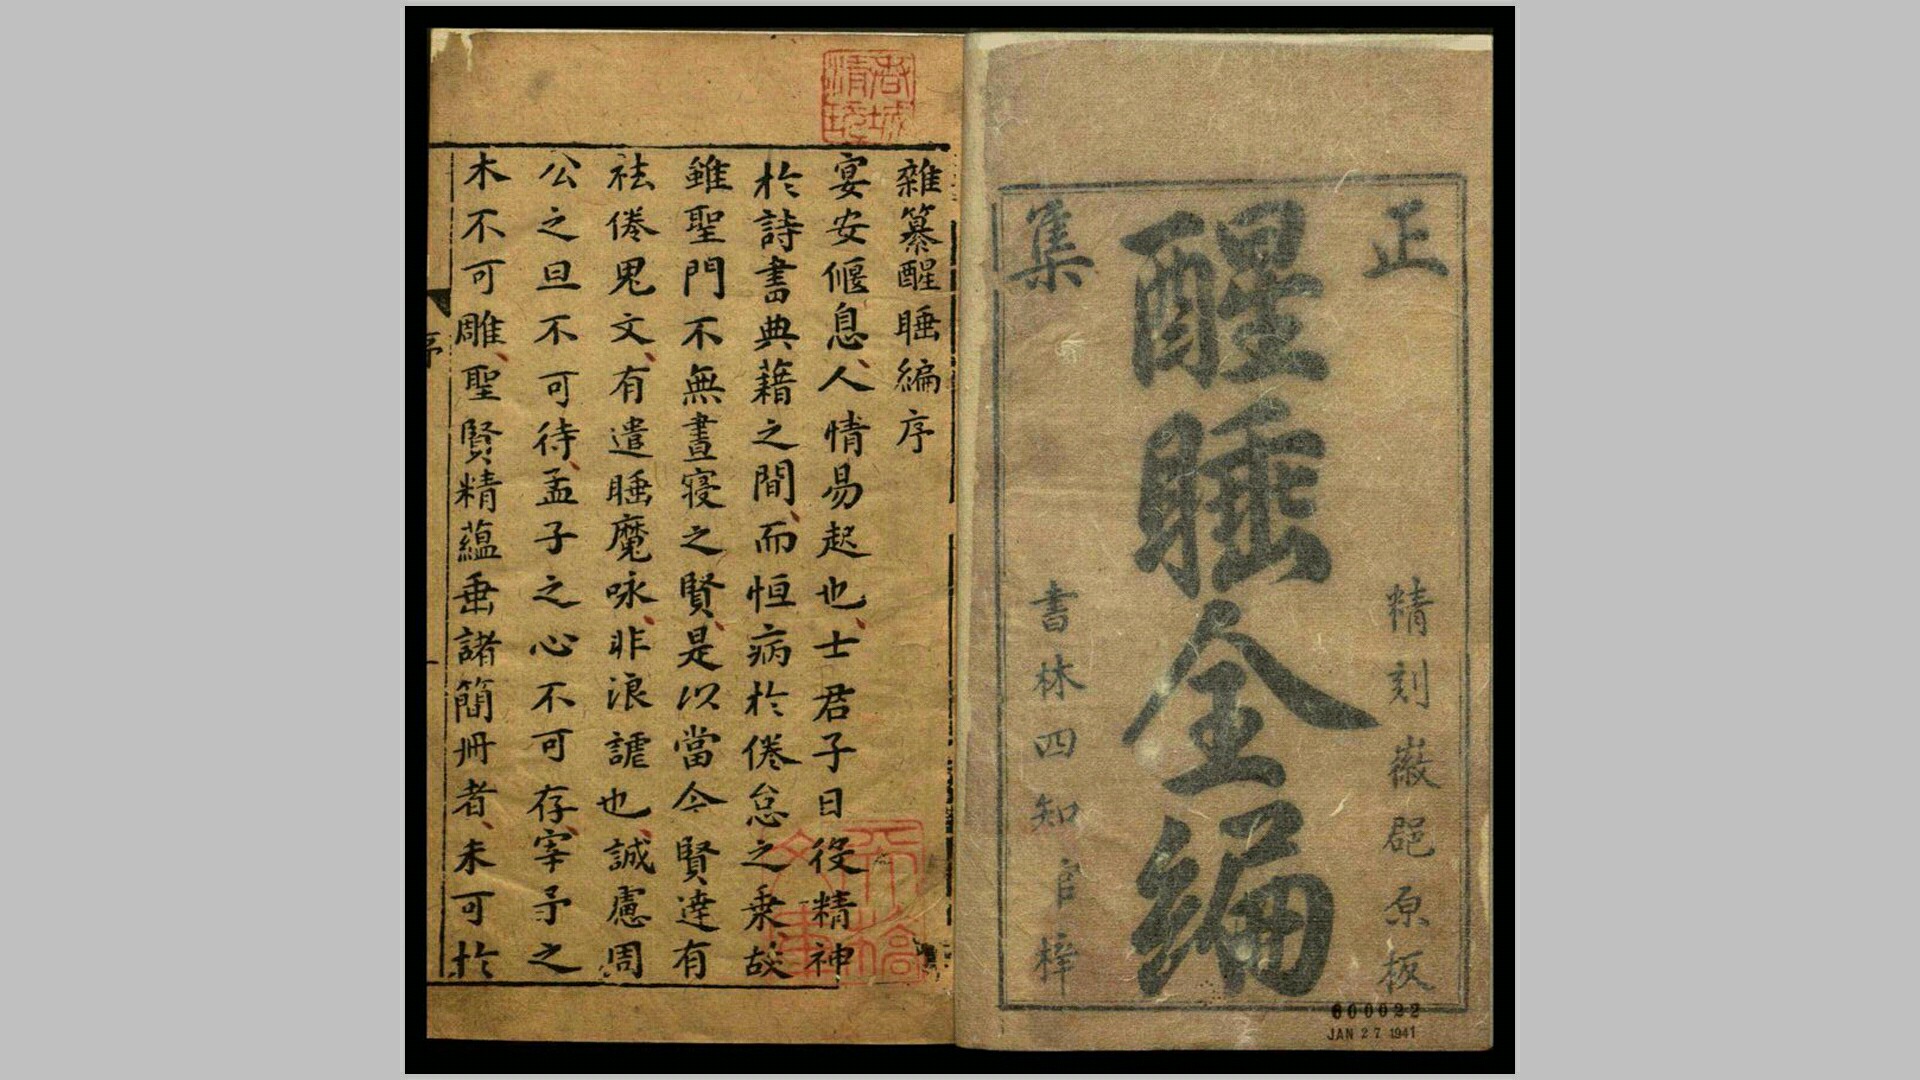 正
精刻徽郡原板
醒睡全編
集
書林四知官梓
600022
JAN 27 1941
雜纂醒睡編序
宴安偃息人情易起也士君子日役精神
於詩書典藉之間而恒病於倦怠之乗故
雖聖門不無晝寝之賢是以當今賢達有
祛倦鬼文有遣睡魔咏非浪謔也誠慮周
公之旦不可待孟子之心不可存宰予之
木不可雕聖賢精蘊垂諸簡冊者未可於
序